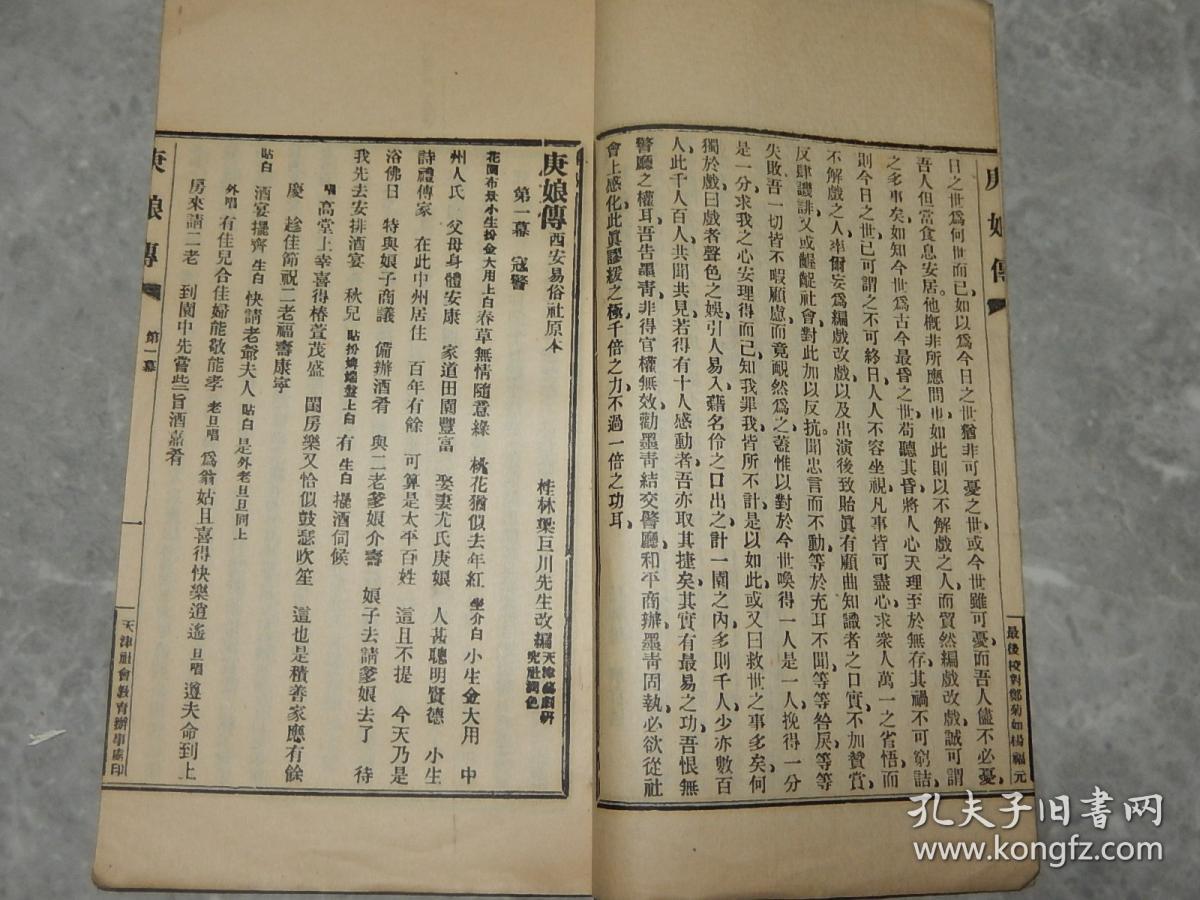 庚娘傳
日之世爲何世而已如以爲今日之世猶非可憂之世或今世雖可憂而吾人儘不必憂
吾人但當食息安居他概非所應問也如此則以不解戲之人而貿然編戲改戲誠可謂
之多事矣如知今世爲古今最昏之世苟聽其昏將人心天理至於無存其禍不可窮詰
則今日之世已可謂之不可終日人人不容坐視凡事皆可盡心求衆人萬一之省悟而
不解戲之人率爾妄爲編戲改戲以及出演後致貽眞有顧曲知識者之口實不加贊賞
反肆譏誹又或齷齪社會對此加以反抗聞忠言而不動等於充耳不聞等等紛戾等等
失敗吾一切皆不暇顧慮而竟靦然爲之蓋惟以對於今世喚得一人是一人挽得一分
是一分求我之心安理得而已知我罪我皆所不計是以如此或又曰救世之事多矣何
獨於戲曰戲者聲色之娛引人易入藉名伶之口出之計一園之內多則千人少亦數百
人此千人百人共聞共見若得有十人感動者吾亦取其捷矣其實有最易之功吾恨無
警廳之權耳吾告墨青非得官權無效勸墨青結交警廳和平商辦墨青固執必欲從社
會上感化此眞謬緩之極千倍之力不過一倍之功耳
最後校對鄭菊如楊福元
庚娘傳 西安易俗社原本 桂林梁巨川先生改編 天津戲劇研究社潤色
第一幕 寇警
花園布景小生扮金大用上白春草無情隨意綠 桃花猶似去年紅 坐介白 小生金大用 中
州人氏 父母身體安康 家道田園豐富 娶妻尤氏庚娘 人甚聰明賢德 小生
詩禮傳家 在此中州居住 百年有餘 可算是太平百姓 這且不提 今天乃是
浴佛日 特與娘子商議 備辦酒肴 與二老爹娘介壽 娘子去請爹娘去了 待
我先去安排酒宴 秋兒 貼扮嬌端盤上白 有 生白 擺酒伺候
唱 高堂上幸喜得椿萱茂盛 閨房樂又恰似鼓瑟吹笙 這也是積善家應有餘
慶 趁佳節祝二老福壽康寧
貼白 酒宴擺齊 生白 快請老爺夫人 貼白 是 外老旦旦同上
外唱 有佳兒合佳婦能敬能孝 老旦唱 爲翁姑且喜得快樂逍遙 旦唱 遵夫命到上
房來請二老 到園中先嘗些旨酒嘉肴
庚娘傳
第一幕
一
天津社會教育辦事處印
孔夫子旧書网
www.kongfz.com